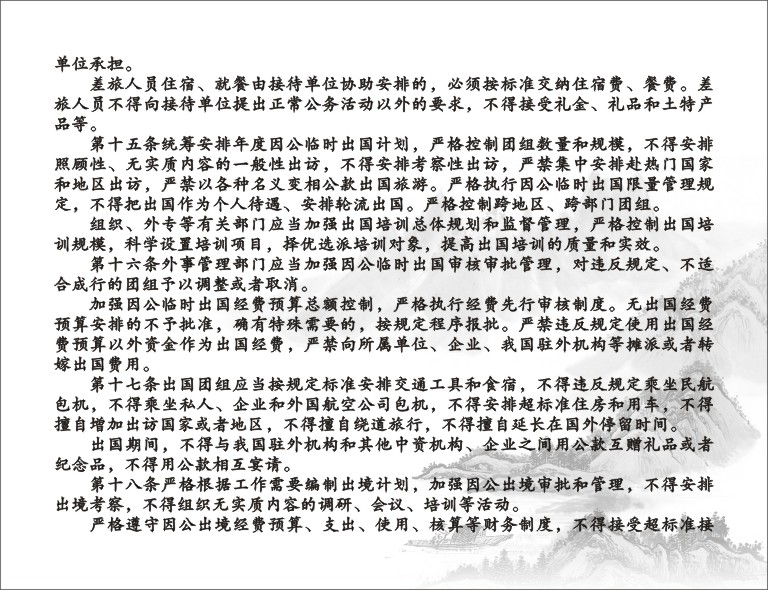 单位承担。
差旅人员住宿、就餐由接待单位协助安排的，必须按标准交纳住宿费、餐费。差
旅人员不得向接待单位提出正常公务活动以外的要求，不得接受礼金、礼品和土特产
品等。
第十五条统筹安排年度因公临时出国计划，严格控制团组数量和规模，不得安排
照顾性、无实质内容的一般性出访，不得安排考察性出访，严禁集中安排赴热门国家
和地区出访，严禁以各种名义变相公款出国旅游。严格执行因公临时出国限量管理规
定，不得把出国作为个人待遇、安排轮流出国。严格控制跨地区、跨部门团组。
组织、外专等有关部门应当加强出国培训总体规划和监督管理，严格控制出国培
训规模，科学设置培训项目，择优选派培训对象，提高出国培训的质量和实效。
第十六条外事管理部门应当加强因公临时出国审核审批管理，对违反规定、不适
合成行的团组予以调整或者取消。
加强因公临时出国经费预算总额控制，严格执行经费先行审核制度。无出国经费
预算安排的不予批准，确有特殊需要的，按规定程序报批。严禁违反规定使用出国经
费预算以外资金作为出国经费，严禁向所属单位、企业、我国驻外机构等摊派或者转
嫁出国费用。
第十七条出国团组应当按规定标准安排交通工具和食宿，不得违反规定乘坐民航
包机，不得乘坐私人、企业和外国航空公司包机，不得安排超标准住房和用车，不得
擅自增加出访国家或者地区，不得擅自绕道旅行，不得擅自延长在国外停留时间。
出国期间，不得与我国驻外机构和其他中资机构、企业之间用公款互赠礼品或者
纪念品，不得用公款相互宴请。
第十八条严格根据工作需要编制出境计划，加强因公出境审批和管理，不得安排
出境考察，不得组织无实质内容的调研、会议、培训等活动。
严格遵守因公出境经费预算、支出、使用、核算等财务制度，不得接受超标准接